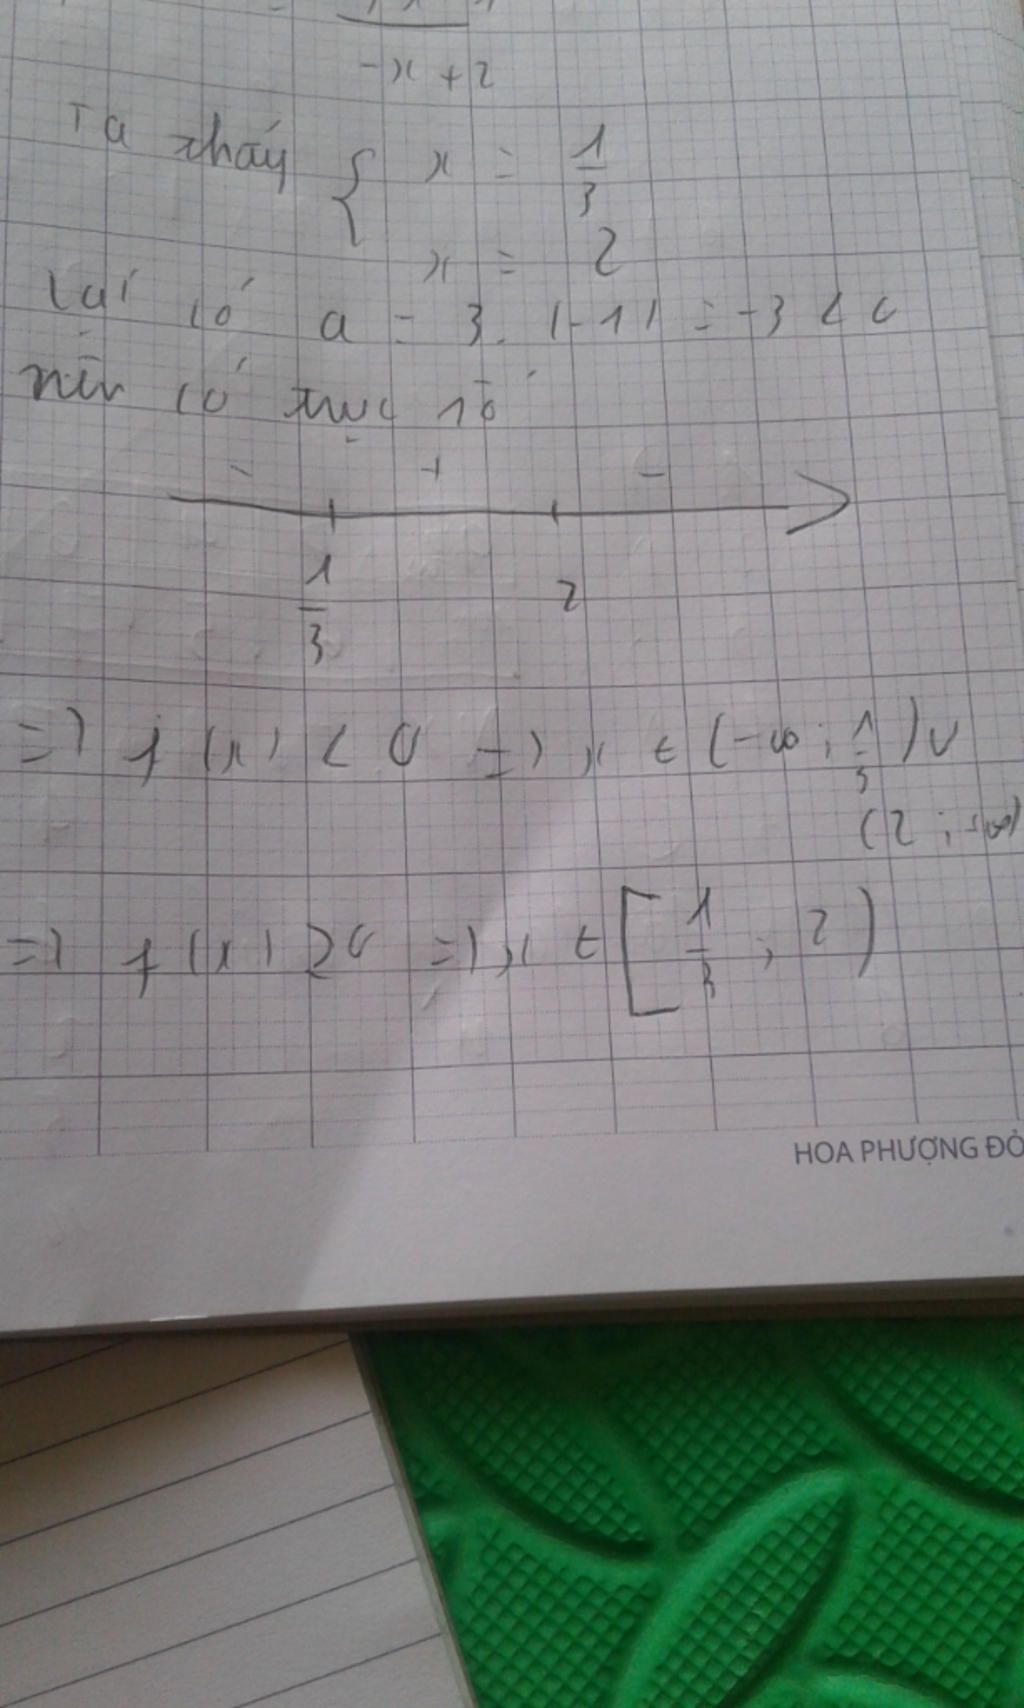 -x + 2
Ta thấy { x = 1/3
x = 2
Lại có a = 3. (-1) = -3 < 0
nên có trục số
- + -
1/3 2
=> f(x) < 0 => x ∈ (-∞ ; 1/3) ∪
(2 ; +∞)
=> f(x) ≥ 0 => x ∈ [1/3 ; 2)
HOA PHƯỢNG ĐỎ